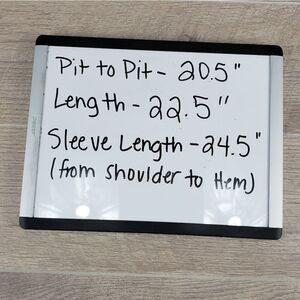 Pit to Pit - 20.5"
Length - 22.5"
Sleeve Length - 24.5"
(from shoulder to Hem)